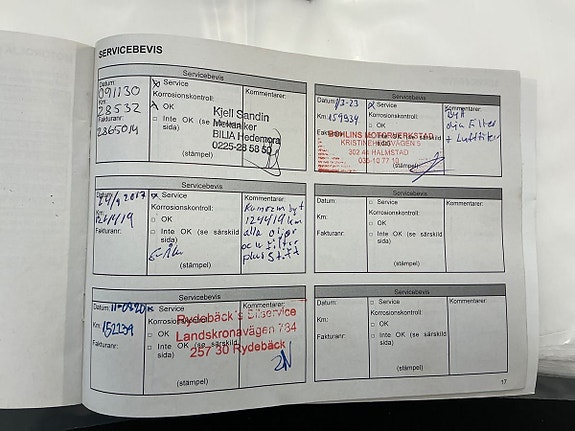 SERVICEBEVIS
Servicebevis
Datum:
091130
Km:
28532
Fakturanr:
2365014
Service
Korrosionskontroll:
OK
Inte OK (se särskild
sida)
(stämpel)
Kommentarer:
Kjell Sandin
Mekaniker
BILIA Hedemora
0225-28 58 50
Servicebevis
Datum:
24/9 2017
Km:
124419
Fakturanr:
Service
Korrosionskontroll:
OK
Inte OK (se särskild
sida)
(stämpel)
Kommentarer:
Kamrem byt
124419 km
alla oljor
och filter
plus stift
Servicebevis
Datum:
Km:
152239
Fakturanr:
Service
Korrosionskontroll:
OK
Inte OK (se särskild
sida)
(stämpel)
Kommentarer:
Rydebäck's Bilservice
Landskronavägen 784
257 30 Rydebäck
Servicebevis
Datum:
Km:
159934
Fakturanr:
Service
Korrosionskontroll:
OK
Inte OK (se särskild
sida)
(stämpel)
Kommentarer:
Byt
olja Filter
+ Luftfilter
MOTORVERKSTAD
302 44 HALMSTAD
Servicebevis
Datum:
Km:
Fakturanr:
Service
Korrosionskontroll:
OK
Inte OK (se särskild
sida)
(stämpel)
Kommentarer:
Servicebevis
Datum:
Km:
Fakturanr:
Service
Korrosionskontroll:
OK
Inte OK (se särskild
sida)
(stämpel)
Kommentarer:
17